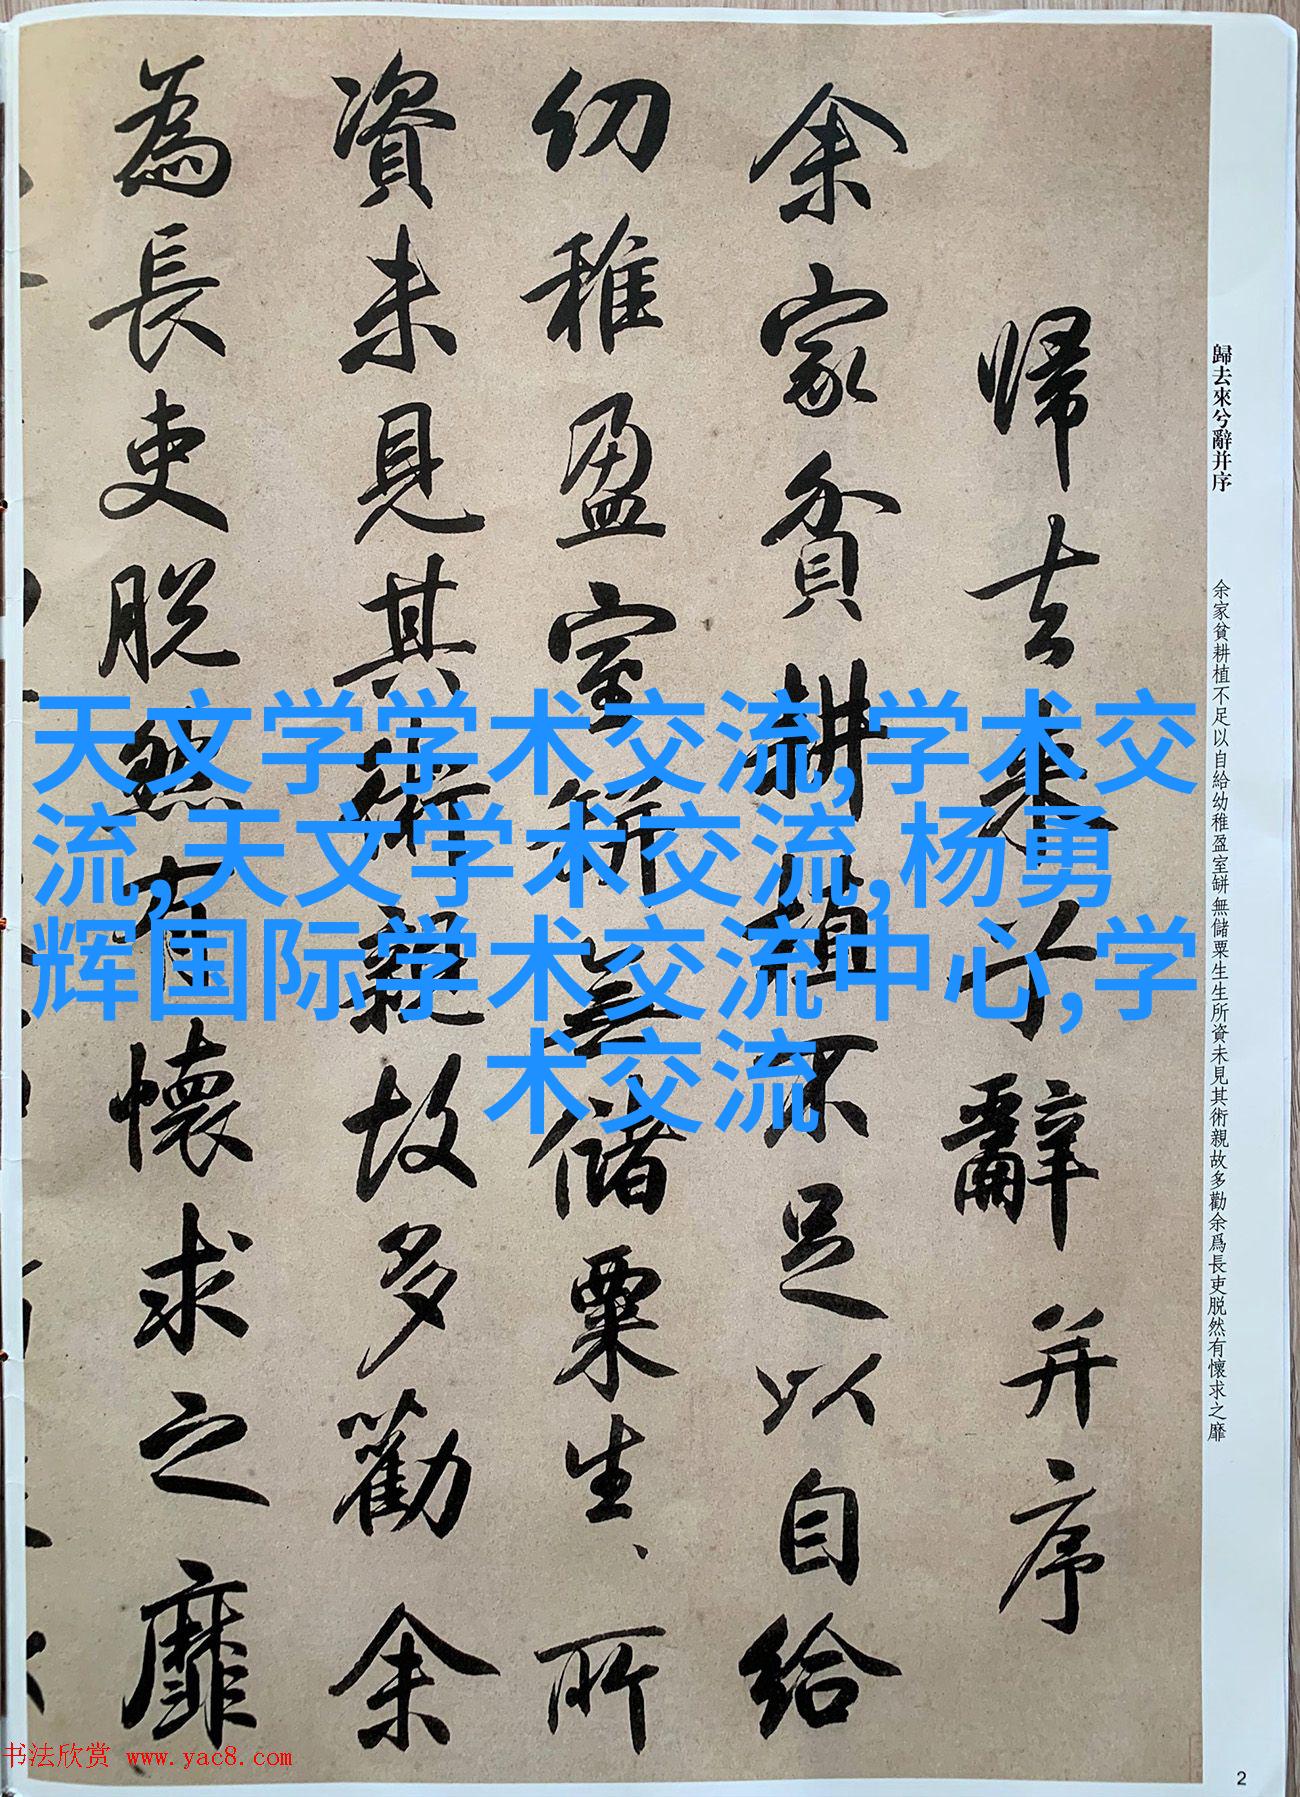 歸去來兮辭并序
余家貧耕植不足以自給幼稚盈室缾無儲粟生生所資未見其術親故多勸余爲長吏脱然有懷求之靡
帰去来兮辭并序
余家貧耕植不足以自給
幼稚盈室缾無儲粟生、所
資未見其術親故多勸余
為長吏脱然有懷求之靡
天文学学术交流,学术交
流,天文学术交流,杨勇
辉国际学术交流中心,学
术交流
书法欣赏 www.yac8.com
2